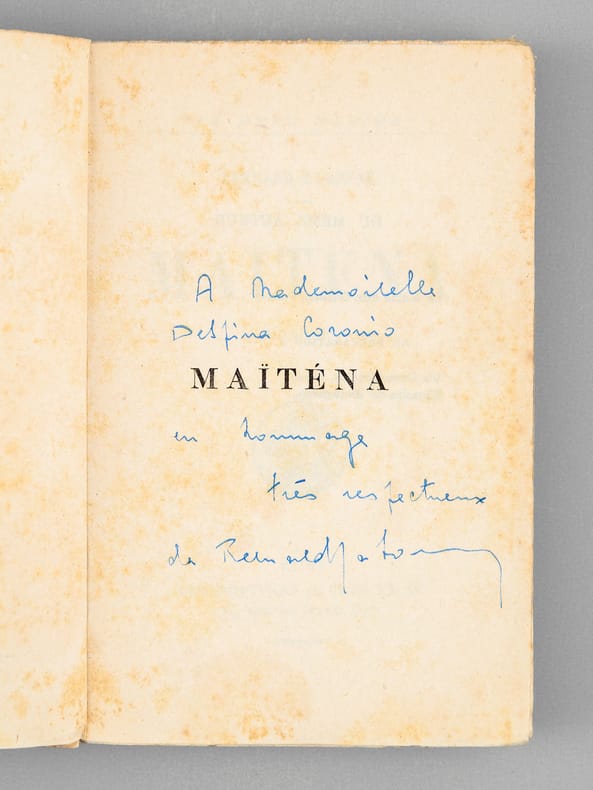 A Mademoiselle
Despina Coronio
MAÏTÉNA
en hommage
très respectueux
de